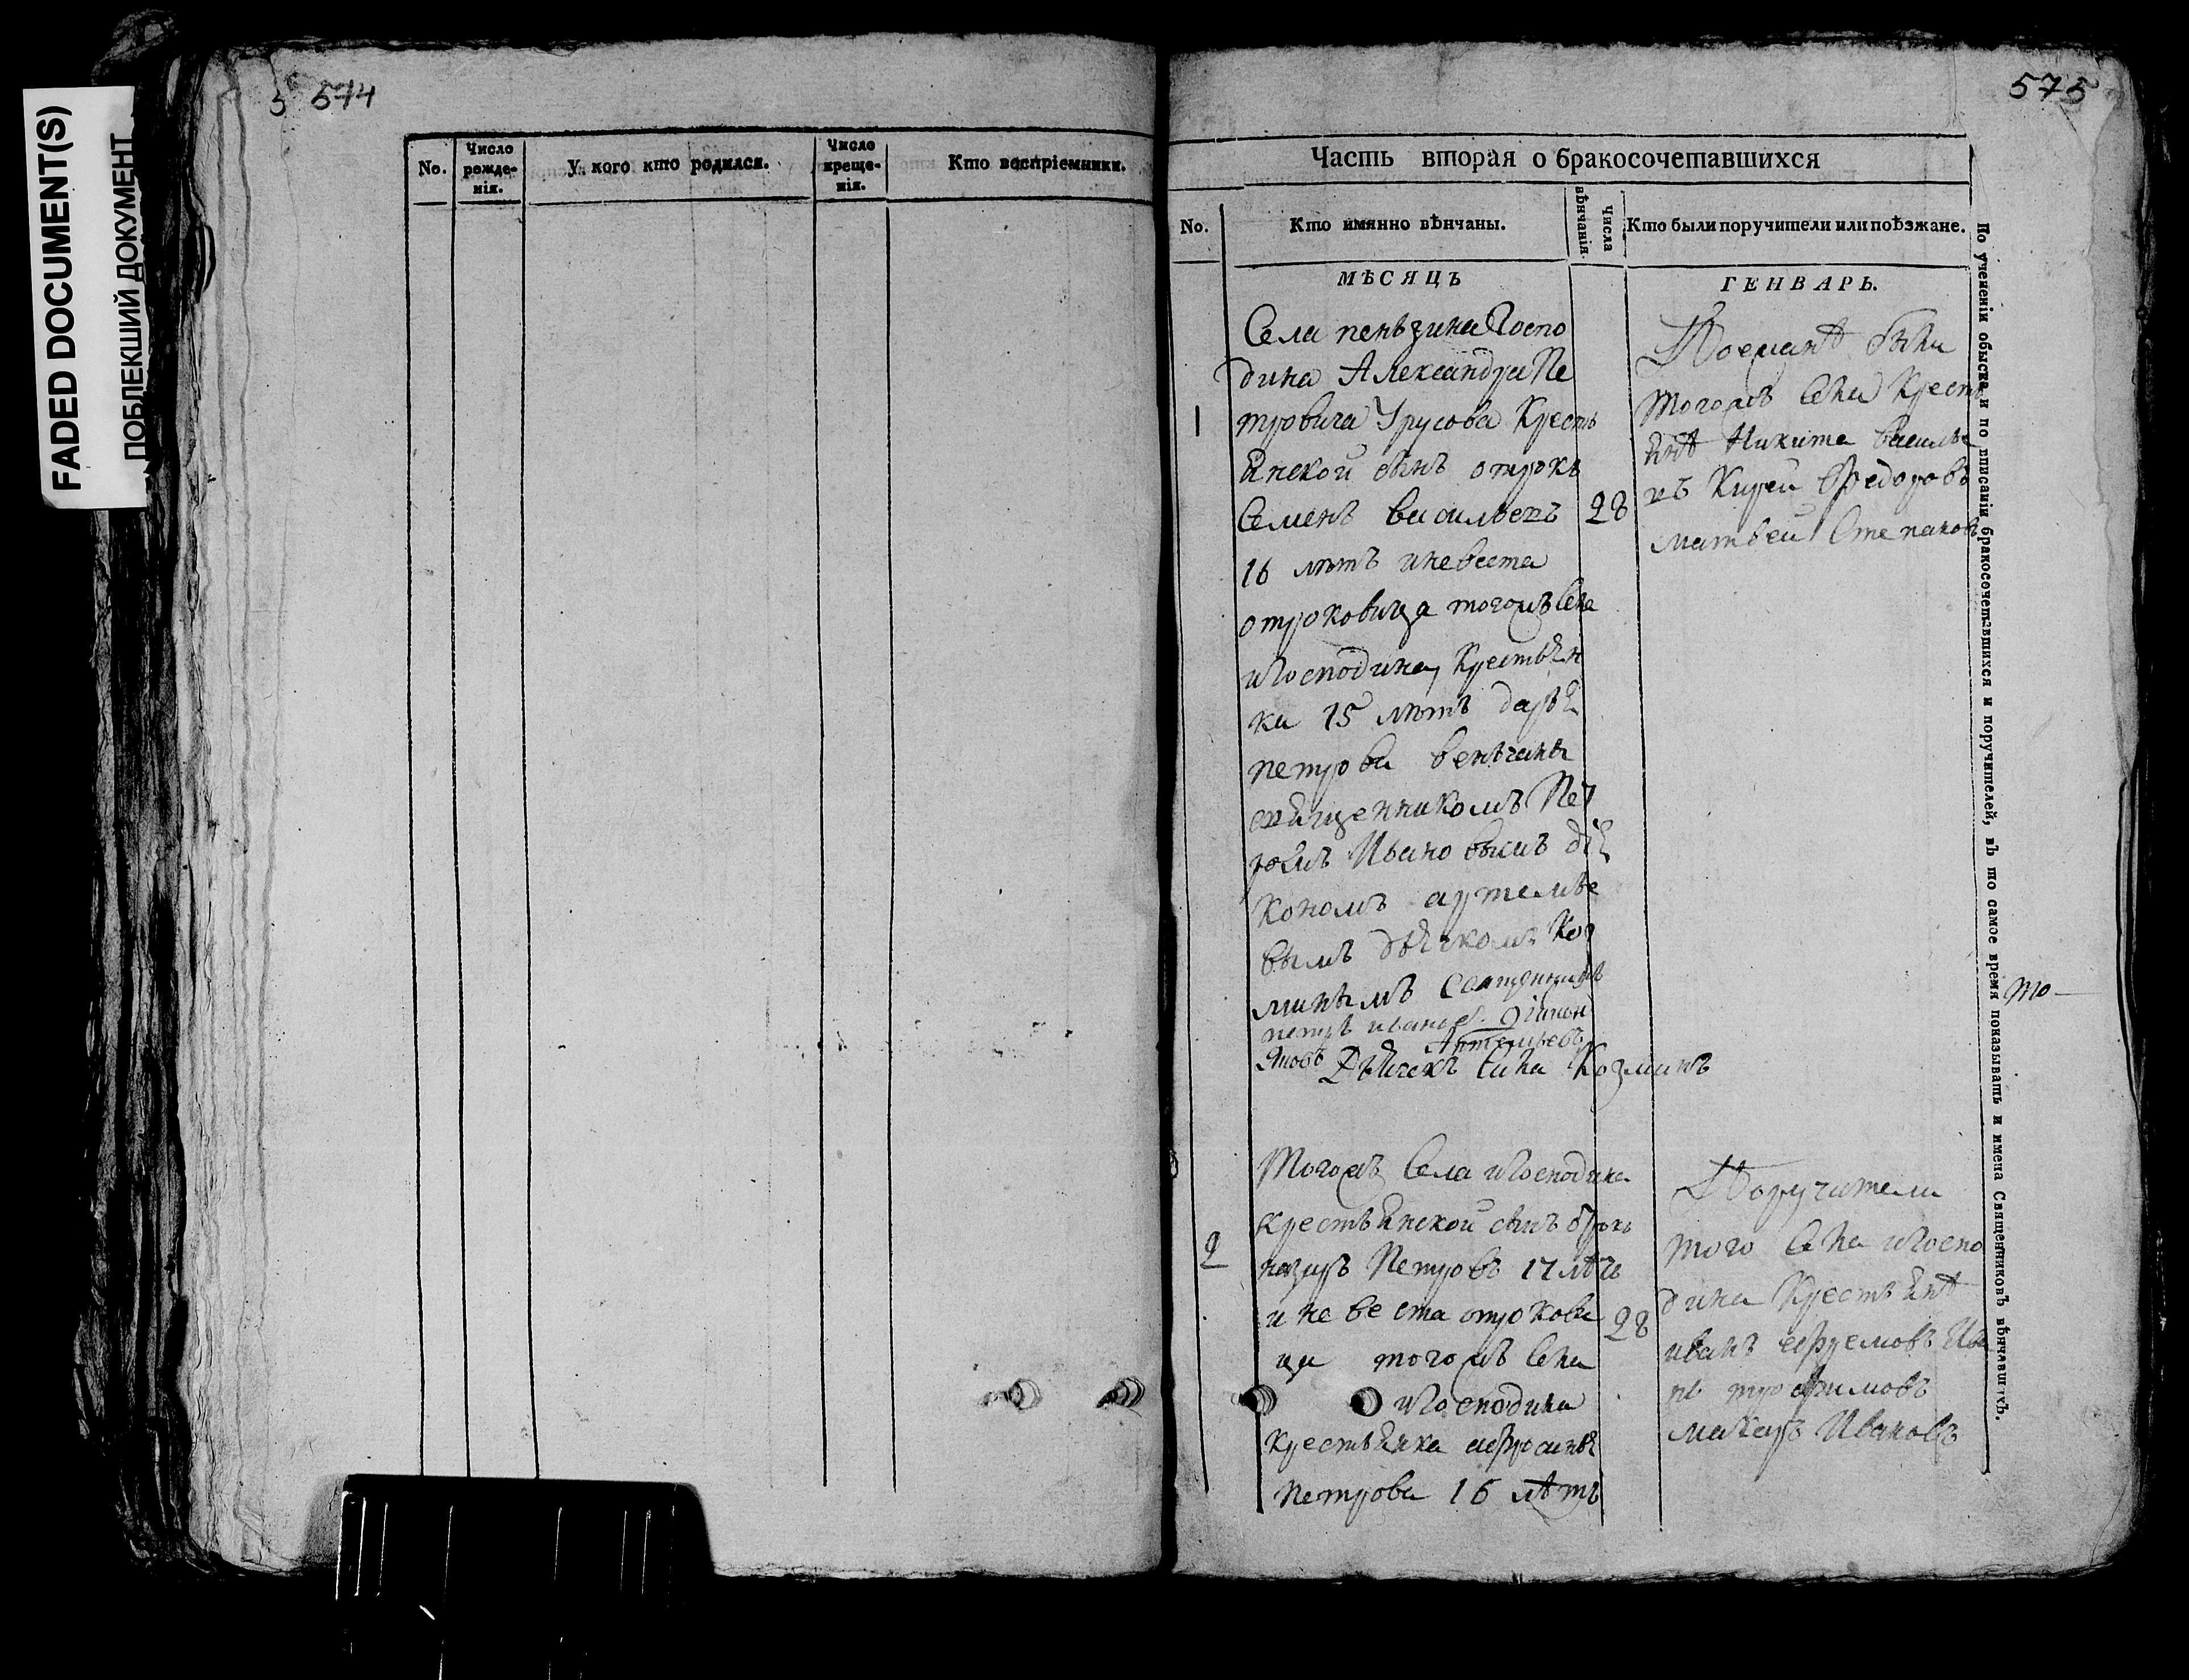 FADED DOCUMENT(S)
ПОБЛЕКШИЙ ДОКУМЕНТ
574
No.
Число рожде-нія.
У кого кто родился.
Число креще-нія.
Кто воспріемники.
575
Часть вторая о бракосочетавшихся
No.
Кто имянно вѣнчаны.
Числа вѣнчанія
Кто были поручители или поѣзжане.
МѢСЯЦЪ
ГЕНВАРЬ.
1
Села пенѣзина Госпо
дина Александра Пе
тровича Урусова Кресть
янской сынъ отрокъ
Семенъ васильевъ
16 лѣтъ иневеста
отроковица тогожъ села
иГосподина Крестьян
ка 15 лѣтъ дарья
петрова венчаны
священникомъ Пет
ромъ Ивановымъ дья
кономъ артемье
вымъ дьячкомъ Коз
минымъ Священникъ
петръ ивановъ Діакон
Яковъ Артемьевъ
Дьячекъ Сила Козминъ
28
были
тогожъ села Кресть
яне Никита василье
въ Кирей Федоровъ
матвей Степановъ
2
Тогожъ Села иГосподина
крестьянской сынъ отрокъ
назаръ Петровъ 17 лѣтъ
и не ве ста отрокови
ца тогожъ села
иГосподина
крестьянка
Петрова 16 лѣтъ
28
Поручители
того села иГоспо
дина Крестьяне
иванъ ефремовъ Ива
нъ трофимовъ
макаръ Ивановъ
По учиненіи обыска и по вписаніи бракосочетавшихся и поручителей, въ то самое время показывать и имена Священниковъ вѣнчавшихъ.
то